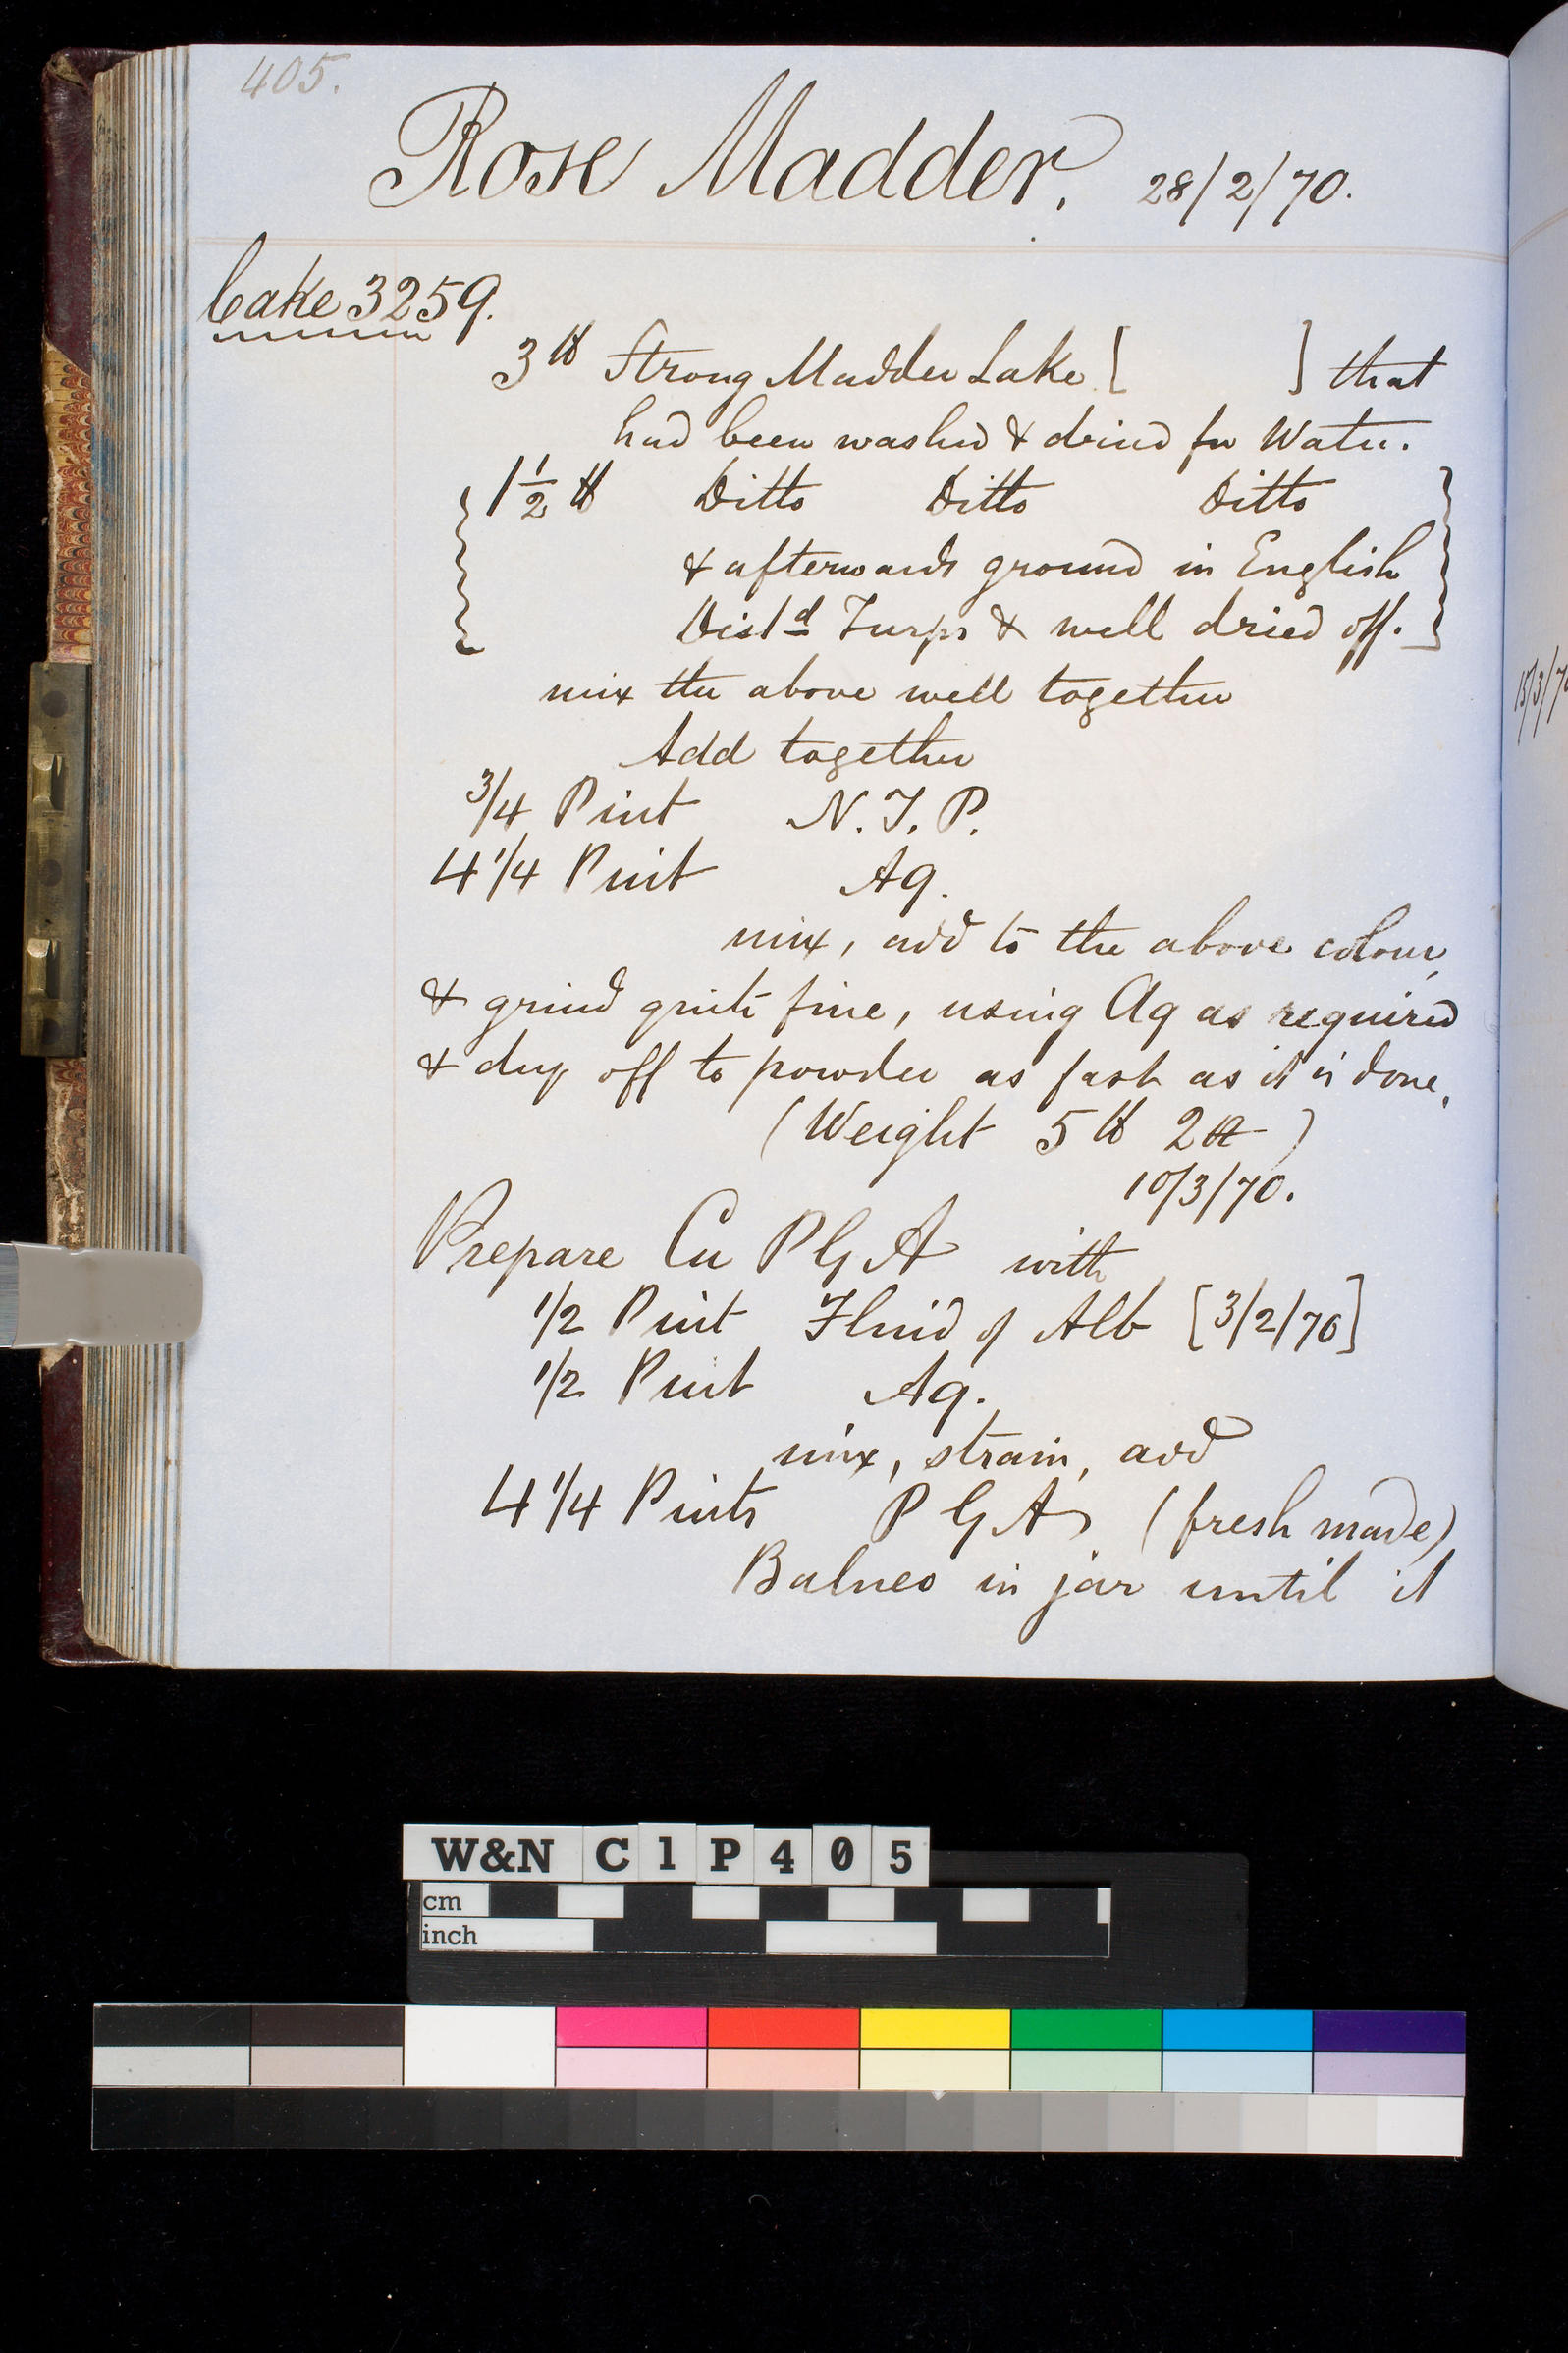 405.
Rose Madder. 28/2/70.
Cake 3259.
3 lb Strong Madder Lake [ ] that
had been washed & dried for Water.
1 1/2 lb Ditto Ditto Ditto
& afterwards ground in English
Distd Turps & well dried off.
mix the above well together
Add together
3/4 Pint N.T.P.
4 1/4 Pint Aq.
mix, add to the above colour,
& grind quite fine, using Aq as required
& dry off to powder as fast as it is done.
(Weight 5 lb 2 oz)
10/3/70.
Prepare Cu P G A with
1/2 Pint Fluid of Alb [3/2/70]
1/2 Pint Aq.
mix, strain, add
4 1/4 Pints P G A (fresh made)
Balneo in jar until it
15/3/7
W&N C1P405
cm
inch